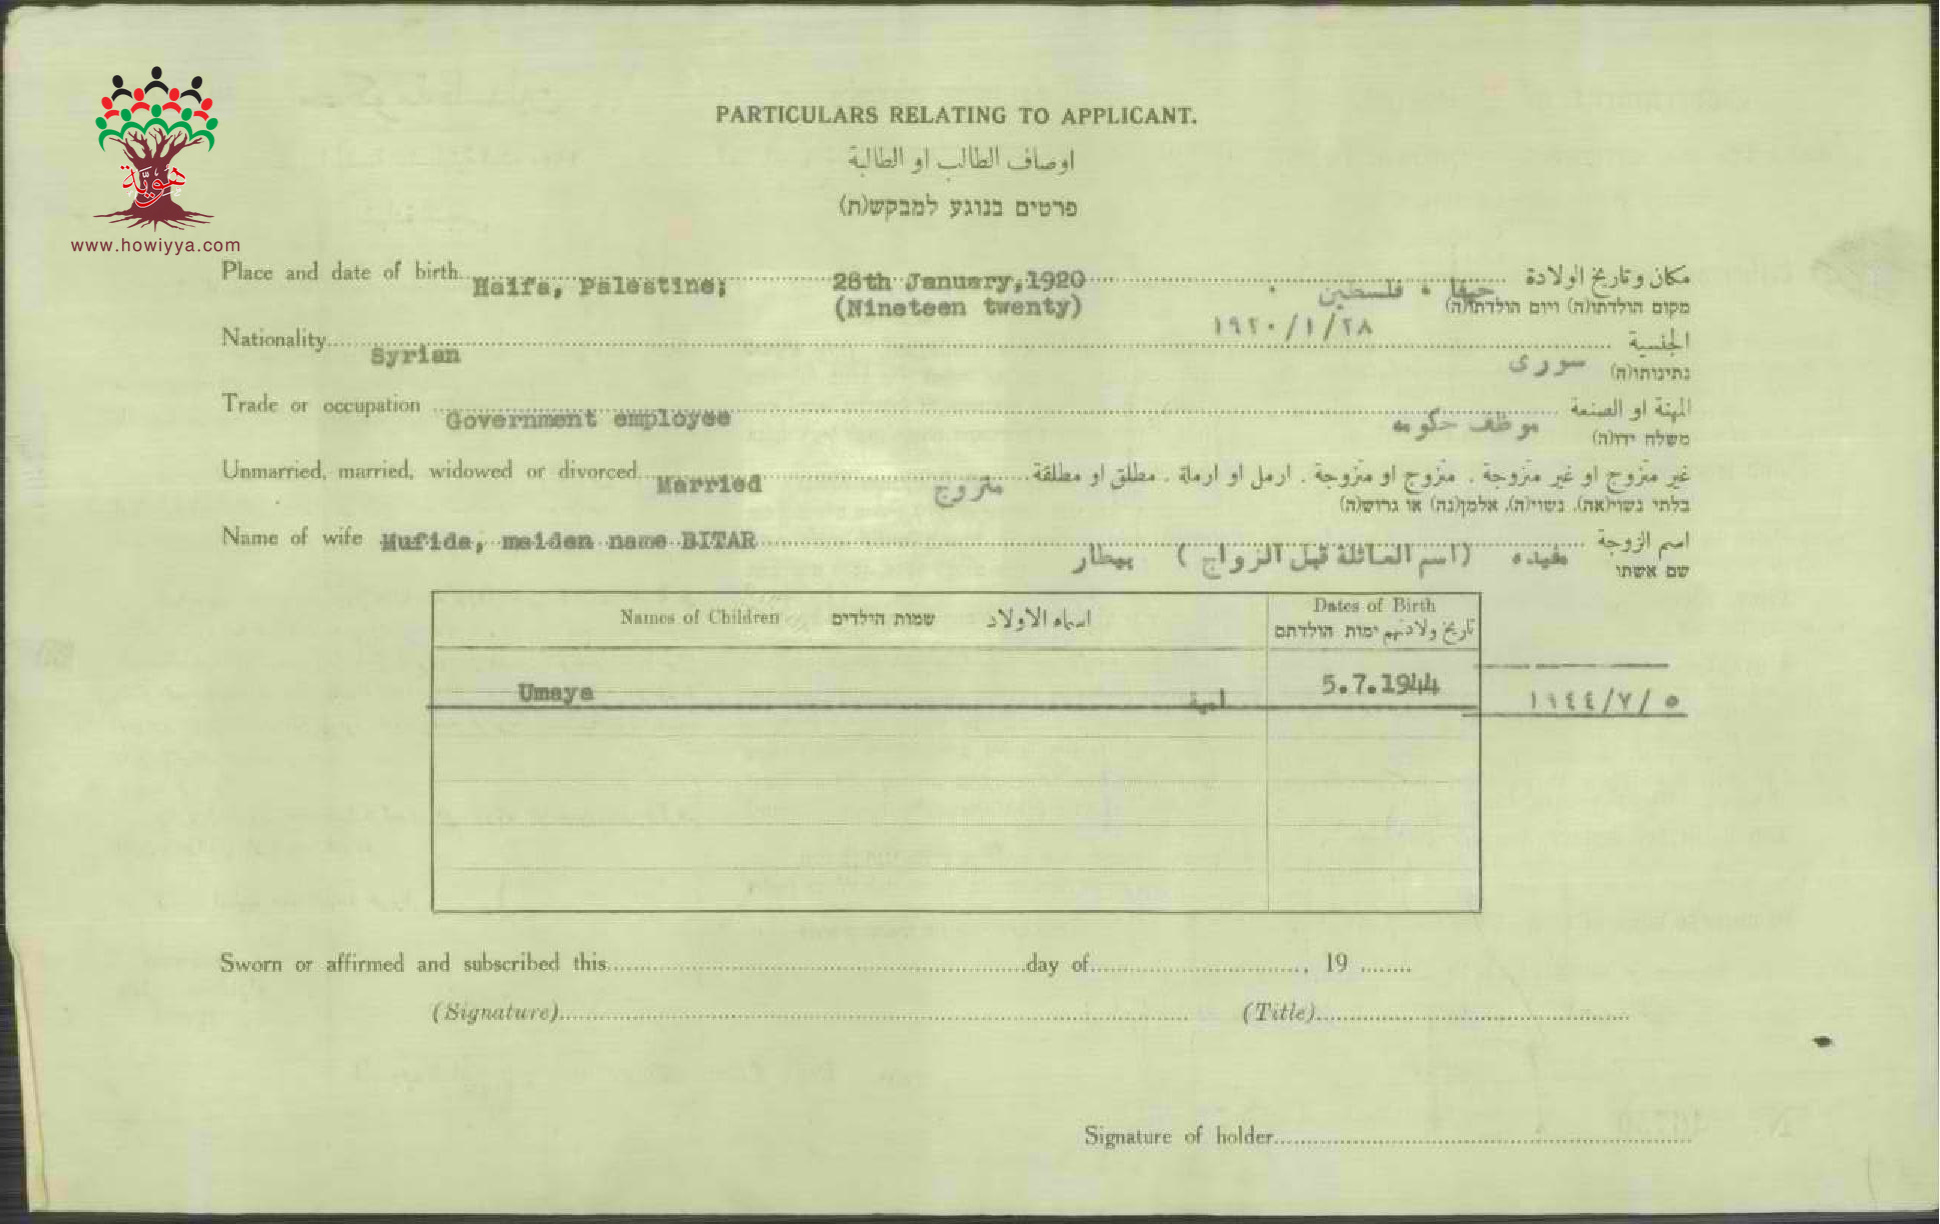 هويّة
www.howiyya.com
PARTICULARS RELATING TO APPLICANT.
اوصاف الطالب او الطالبة
פרטים בנוגע למבקש(ת)
Place and date of birth Haifa, Palestine; 28th January,1920 حيفا ، فلسطين . مكان وتاريخ الولادة
(Nineteen twenty) מקום הולדתו(ה) ויום הולדתו(ה)
١٩٢٠/١/٢٨
Nationality Syrian سورى الجنسية
נתינותו(ה)
Trade or occupation Government employee موظف حكومه المهنة او الصنعة
משלח ידו(ה)
Unmarried, married, widowed or divorced Married متزوج غير متزوج او غير متزوجة . متزوج او متزوجة . ارمل او ارملة . مطلق او مطلقة
בלתי נשוי(אה), נשוי(ה), אלמן(נה) או גרוש(ה)
Name of wife Mufida, maiden name BITAR مفيده (اسم العائلة قبل الزواج ) بيطار اسم الزوجة
שם אשתו
Names of Children שמות הילדים اسماء الاولاد Dates of Birth
تاريخ ولادتهم ימות הולדתם
Umaya امية 5.7.1944 ١٩٤٤/٧/٥
Sworn or affirmed and subscribed this day of , 19
(Signature) (Title)
Signature of holder